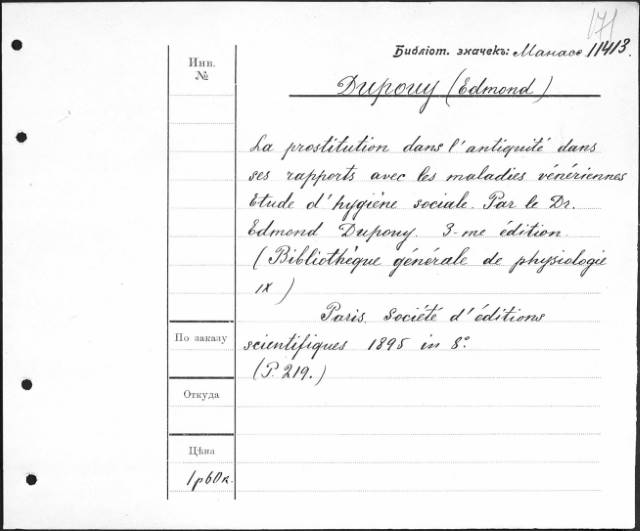 171
Библіот. значекъ: Манасе 11413.
Инв.
№
Dupouy (Edmond)
La prostitution dans l'antiquité dans
ses rapports avec les maladies vénériennes
Etude d'hygiène sociale. Par le Dr.
Edmond Dupouy. 3-me édition.
(Bibliothèque générale de physiologie
IX)
Paris. Société d'éditions
По заказу
scientifiques 1895 in 8°.
(P. 219.)
Откуда
Цѣна
1 р 60 к.